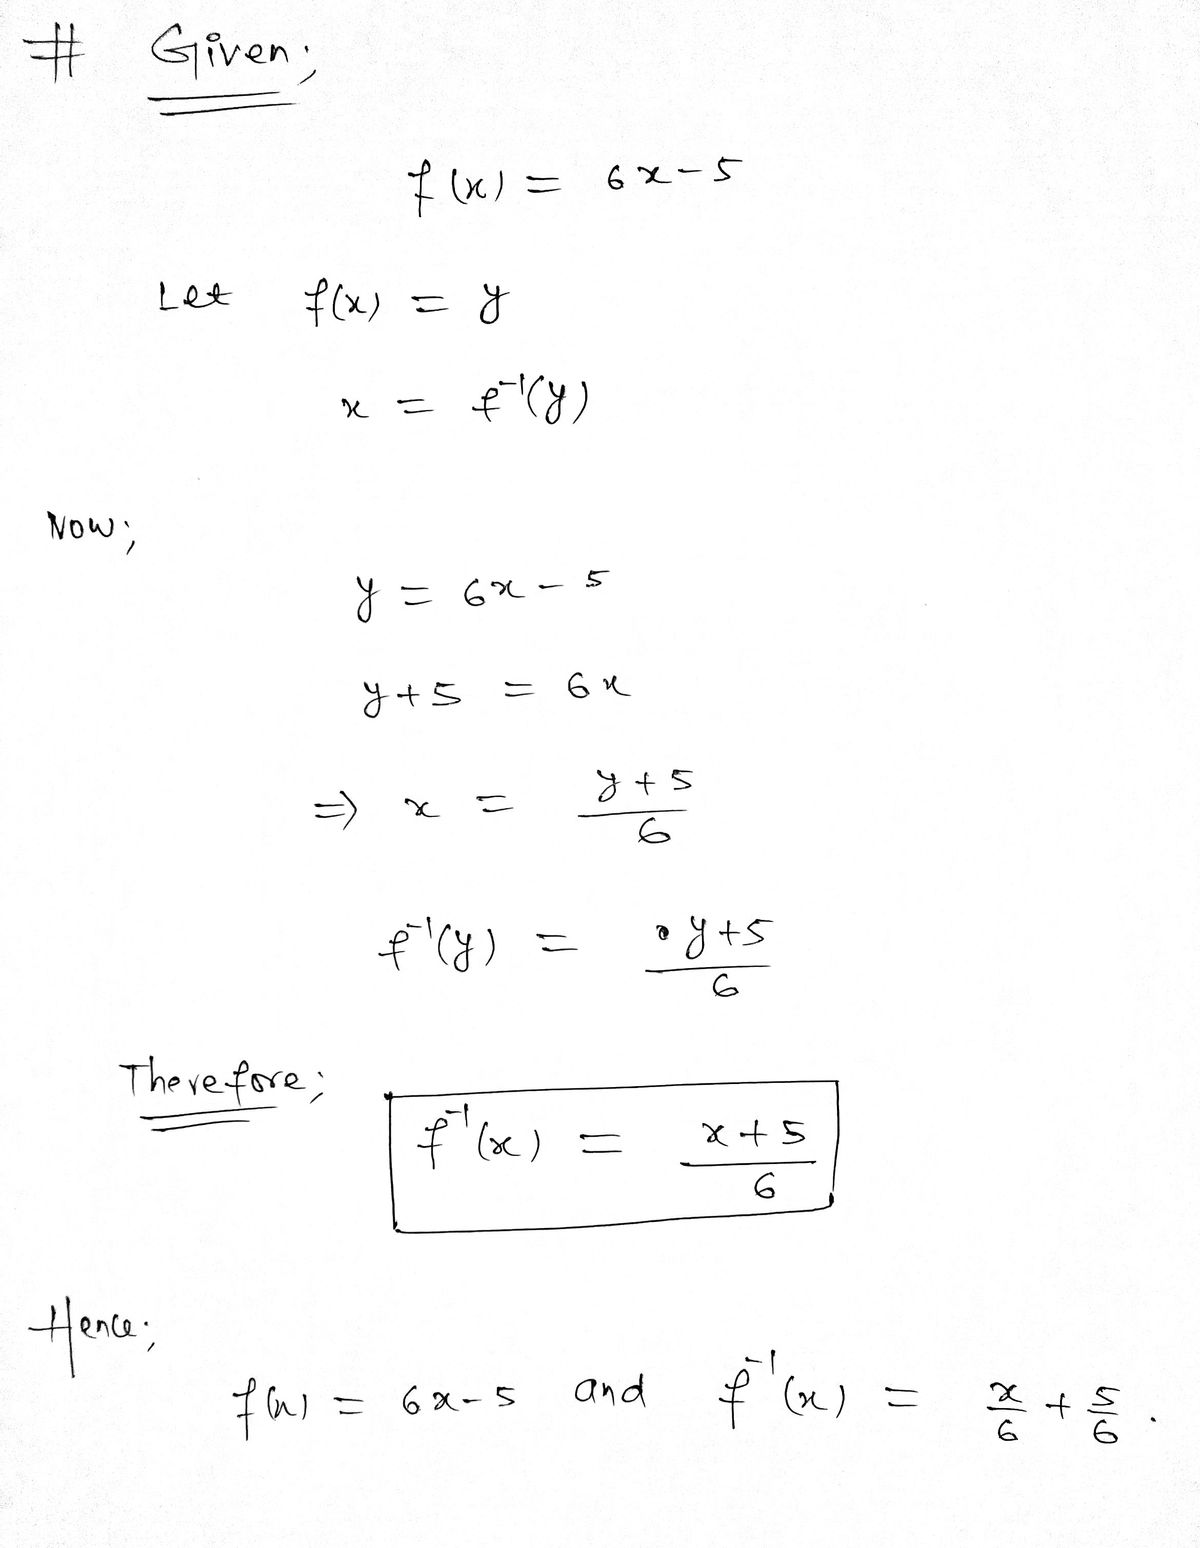 # Given;
f(x) = 6x-5
Let f(x) = y
x = f⁻¹(y)
Now;
y = 6x - 5
y+5 = 6x
=> x = y+5/6
f⁻¹(y) = y+5/6
Therefore;
f⁻¹(x) = x+5/6
Hence;
f(x) = 6x-5 and f⁻¹(x) = x/6 + 5/6.